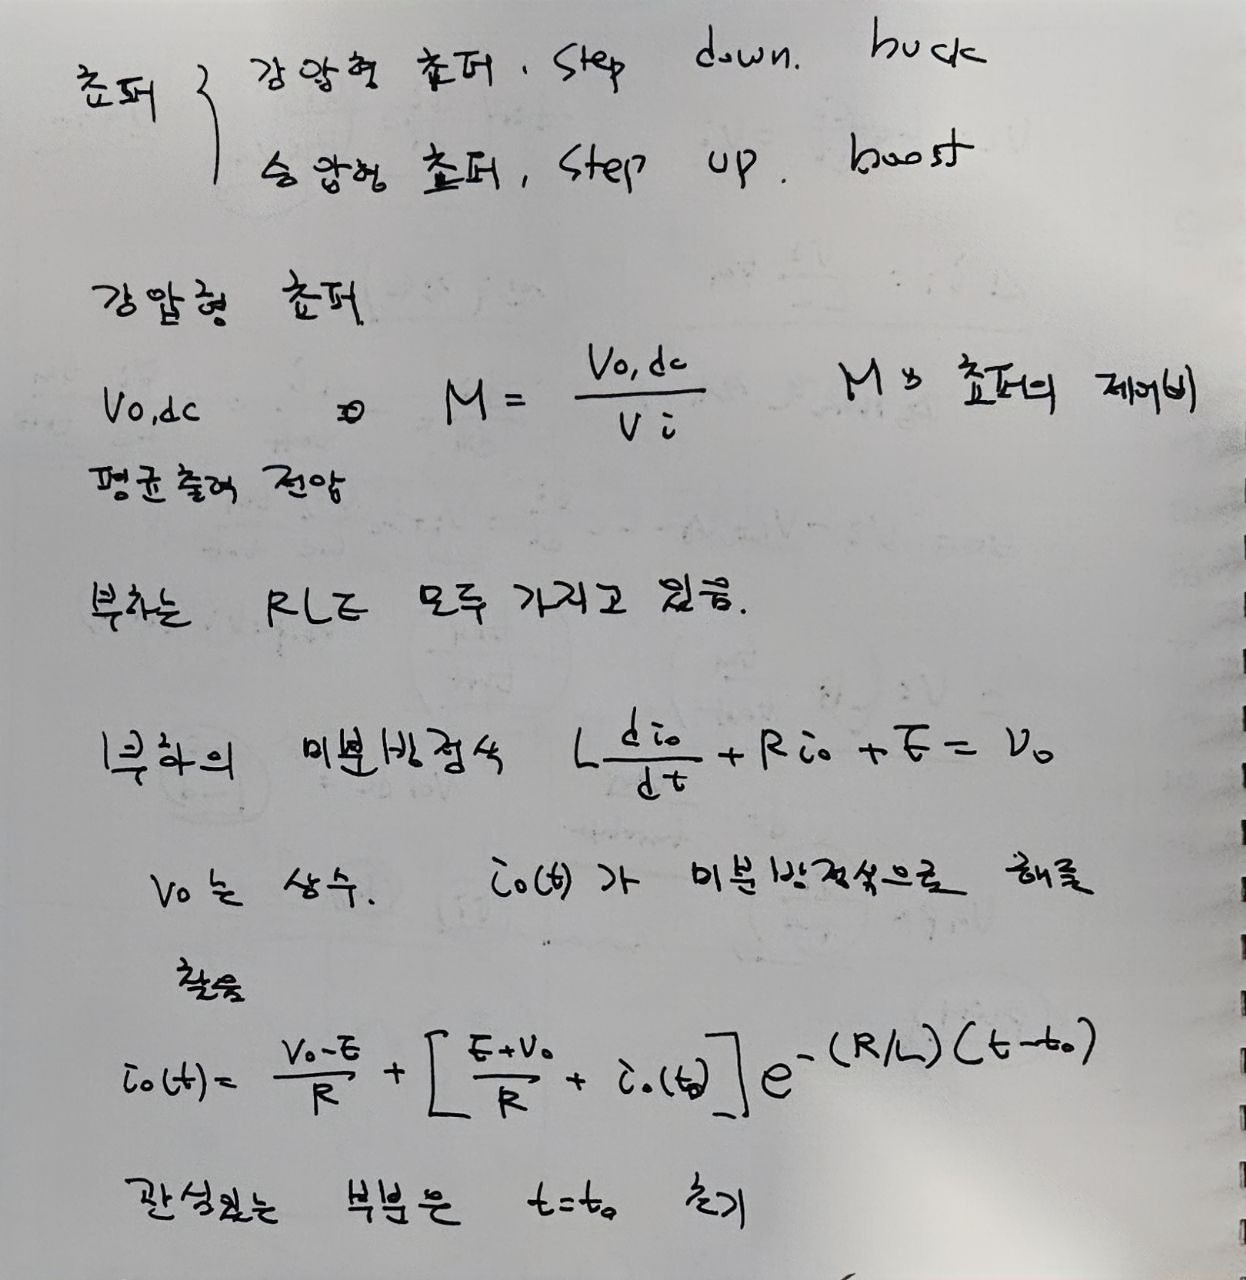 초퍼 { 강압형 초퍼. Step down. buck
승압형 초퍼, Step up. boost
강압형 초퍼
Vo,dc ⇒ M = Vo,dc / Vi M 초퍼의 제어비
평균출력 전압
부하는 RLE 모두 가지고 있음.
부하의 미분방정식 L dio/dt + Rio + E = Vo
Vo는 상수. io(t)가 미분방정식으로 해를
찾음
io(t) = (Vo-E)/R + [(E+Vo)/R + io(to)] e^-(R/L)(t-to)
관심있는 부분은 t=to 초기